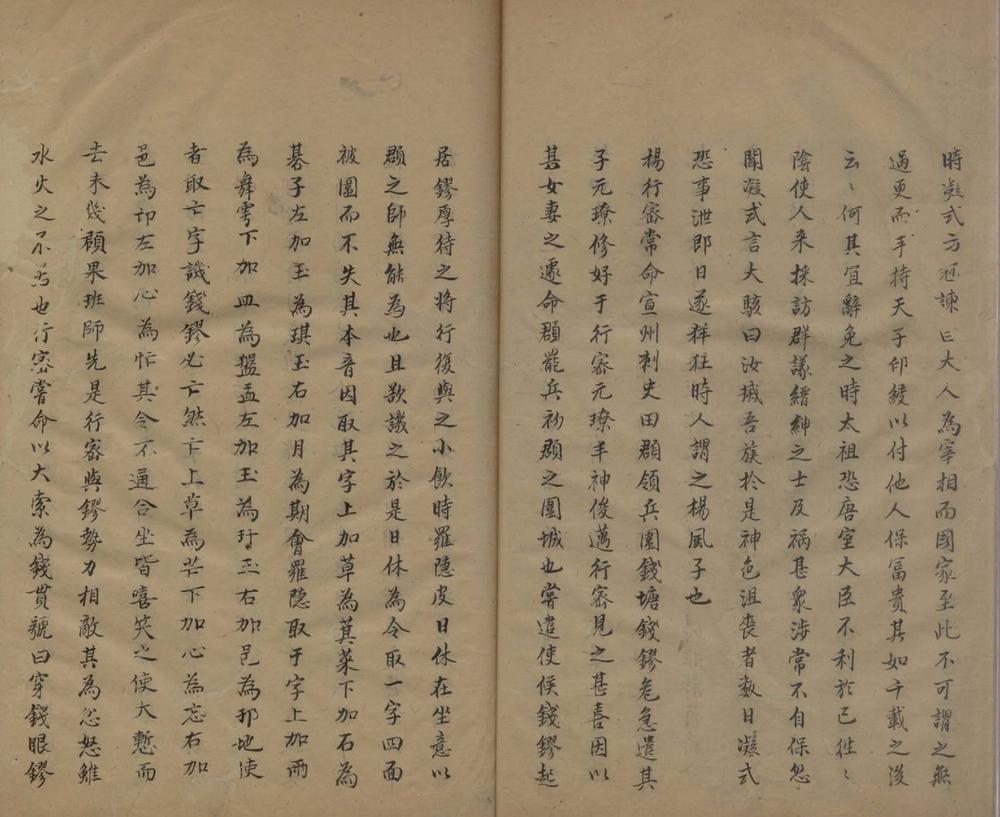 時凝式方冠諫曰大人為宰相而國家至此不可謂之無
過更而手持天子印綬以付他人保冨貴其如千載之後
云〻何其冝辭免之時太祖恐唐室大臣不利於己徃〻
陰使人来採訪群議縉紳之士及祸甚衆涉常不自保忽
聞凝式言大駭曰汝㓕吾族扵是神色沮喪者数日凝式
恐事泄即日遂佯狂時人謂之楊風子也
楊行宻常命宣州刺史田頵領兵圍錢塘錢鏐危急遣其
子元璙修好于行宻元璙丰神俊邁行宻見之甚喜因以
其女妻之遽命頵罷兵初頵之圍城也嘗遣使候錢鏐起
居鏐厚待之将行復與之小飲時羅隱皮日休在坐意以
頵之師無能為也且欲譏之於是日休為令取一字四面
被圍而不失其本音因取其字上加草為萁菜下加石為
碁子左加玉為琪玉右加月為期會羅隐取于字上加雨
為舞雩下加皿為盤盂左加玉為玗玉右加邑為邘地使
者取亡字譏錢鏐必亡然亡上草為芒下加心為忘右加
邑為邙左加心為忙其令不通合坐皆嘻笑之使大慙而
去未幾頵果班師先是行宻與鏐勢力相敵其為忿怒雖
水火之不若也行宻嘗命以大索為錢貫號曰穿錢眼鏐